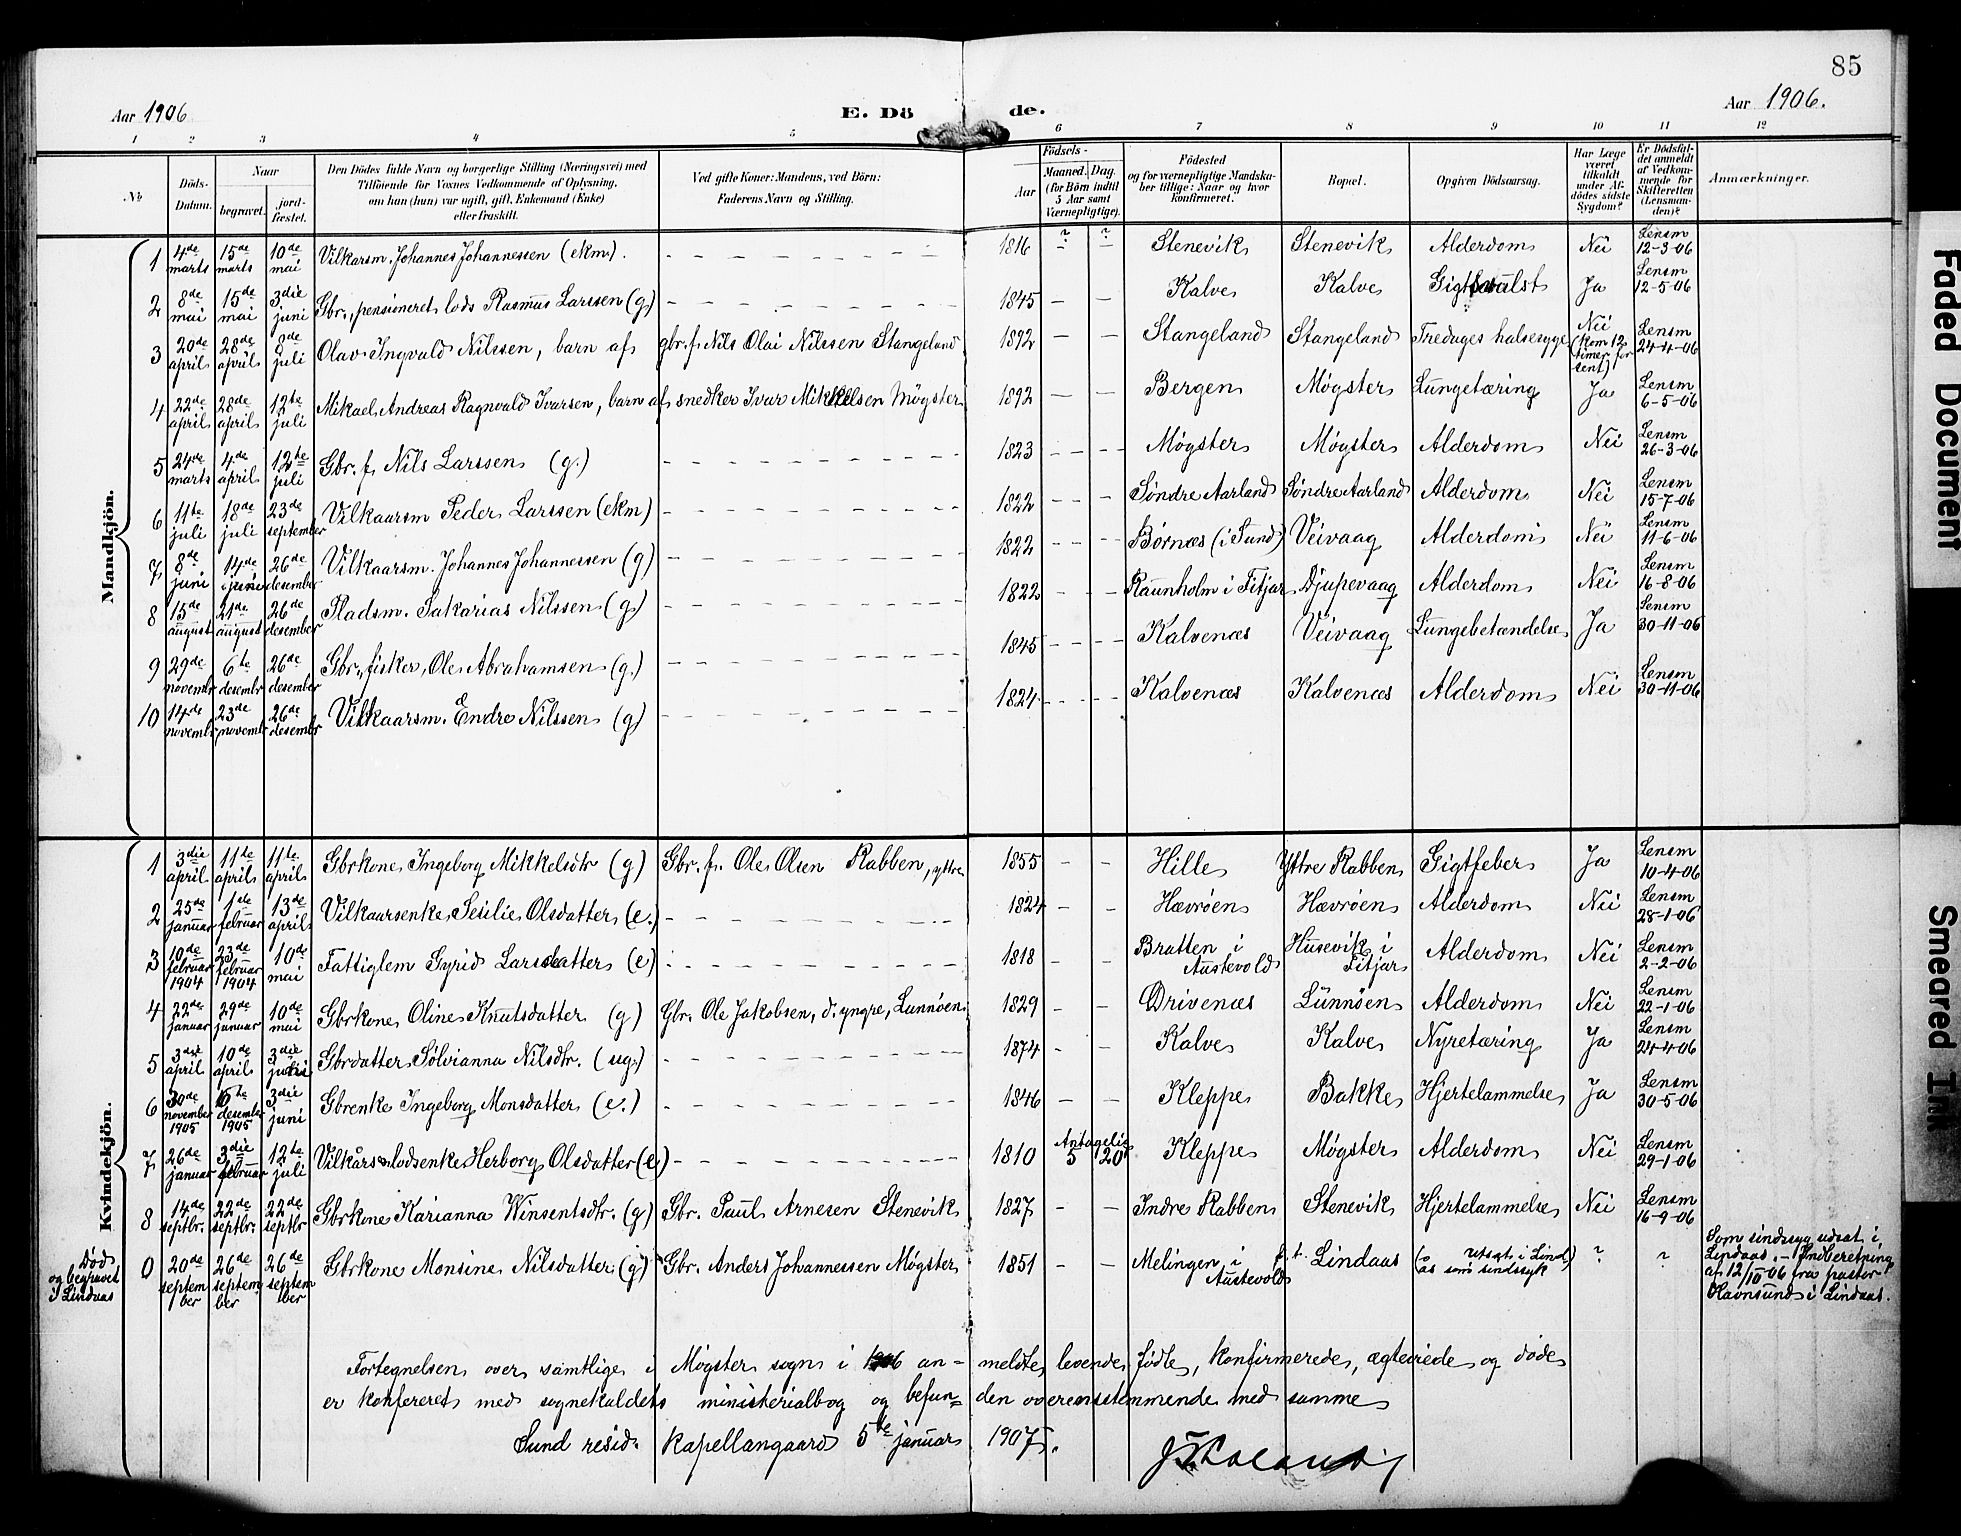 85
Aar 1906 E. Dö de. Aar 1906.
1 2 3 4 5 6 7 8 9 10 11 12
№ Döds-Datum. Naar begravet. jordfæstet. Den Dödes fulde Navn og borgerlige Stilling (Næringsvei) med Tilföiende for Voxnes Vedkommende af Oplysning, om han (hun) var ugift, gift, Enkemand (Enke) eller fraskilt. Ved gifte Koner: Mandens, ved Börn: Faderens Navn og Stilling. Födsels- Aar Maaned. Dag. (for Börn indtil 5 Aar samt Værnepligtige). Födested og for værnepligtige Mandskaber tillige: Naar og hvor konfirmeret. Bopæl. Opgiven Dödsaarsag. Har Læge været tilkaldt under Afdödes sidste Sygdom? Er Dödsfaldet anmeldt af Vedkommende for Skifteretten (Lensmanden)? Anmærkninger.
Mandkjön.
1 4de marts 15de marts 10de mai Vilkarsm. Johannes Johannessen (ekm). 1816 ? ? Stenevik Stenevik Alderdom Nei Lensm 12-3-06
2 8de mai 15de mai 3die juni Gbr., pensioneret lods Rasmus Larssen (g) 1845 Kalve Kalve Gigtsvulst Ja Lensm 12-5-06
3 20de april 28de april 8de juli Olav Ingvald Nilssen, barn af gbr. f. Nils Olai Nilssen Stangeland 1892 Stangeland Stangeland Tredages halsesyge Nei (kom 12 timer for sent) Lensm 24-4-06
4 22de april 28de april 12te juli Mikael Andreas Ragnvald Ivarsen, barn af snedker Ivar Mikkelsen Møgster 1892 Bergen Møgster Lungetæring Ja Lensm 6-5-06
5 24de marts 4de april 12te juli Gbr. f. Nils Larssen (g.) 1823 Møgster Møgster Alderdom Nei Lensm 26-3-06
6 11te juli 18de juli 23de september Vilkaarsm Peder Larssen (ekm) 1822 Søndre Aarland Søndre Aarland Alderdom Nei Lensm 15-7-06
7 8de juni 14de juni 26de desember Vilkaarsm. Johannes Johannessen (g) 1822 Børnæs (i Sund) Veivaag Alderdom Nei Lensm 11-6-06
8 15de august 21de august 26de desember Pladsm. Sakarias Nilssen (g.) 1822 Raunholm i Fitjar Djupevaag Alderdom Nei Lensm 16-8-06
9 29de novembr 6te desembr 26de desember Gbr., fisker, Ole Abrahamsen (g.) 1845 Kalvenæs Veivaag Lungebetændelse Ja Lensm 30-11-06
10 14de novembr 23de novembr 26de desembr Vilkaarsm. Endre Nilssen (g) 1824 Kalvenæs Kalvenæs Alderdom Nei Lensm 30-11-06
Kvindekjön.
1 3die april 11te april 11te april Gbrkone Ingeborg Mikkelsdtr (g) Gbr. f. Ole Olsen Rabben, yttre 1855 Hille Yttre Rabben Gigtfeber Ja Lensm 10-4-06
2 25de januar 1ste februar 13de april Vilkaarsenke Sesilie Olsdatter (e.) 1824 Hævrøen Hævrøen Alderdom Nei Lensm 28-1-06
3 10de februar 1904 23de februar 1904 10de mai Fattiglem Gyrid Larsdatter (e) 1818 Bratten i Austevold Husevik i Fitjar Alderdom Nei Lensm 2-2-06
4 22de januar 29de januar 10de mai Gbrkone Oline Knutsdatter (g) Gbr. Ole Jakobsen, d. yngre, Lunnøen 1829 Drivenæs Lunnøen Alderdom Nei Lensm 22-1-06
5 3die april 10de april 3die juni Gbrdatter Sølvianna Nilsdtr. (ug.) 1874 Kalve Kalve Nyretæring Ja Lensm 24-4-06
6 30de november 1905 6te desembr 1905 3die juni Gbrenke Ingeborg Monsdatter (e.) 1846 Kleppe Bakke Hjertelammelse Ja Lensm 30-5-06
7 26de januar 3die februar 12te juli Vilkårs & lodsenke Herborg Olsdatter (e) 1810 Antagelig 5 20 Kleppe Møgster Alderdom Nei Lensm 29-1-06
8 14de septbr. 22de septbr. 22de septbr Gbrkone Karianna Winsentsdtr. (g) Gbr. Paul Arnesen Stenevik 1827 Indre Rabben Stenevik Hjertelammelse Nei Lensm 16-9-06
Død og begravet i Lindaas 0 20de september 26de september 26de september Gbrkone Monsine Nilsdatter (g) Gbr. Anders Johannessen Møgster 1851 Melingen i Austevold p. t. Lindaas (utsat i Lindaas som sindssyk) ? ? Som sindssyg udsat i Lindaas. – Indberetning af 12/10-06 fra pastor Havnsund i Lindaas.
Fortegnelsen over samtlige i Møgster sogn i 1906 an- meldte levende fødte, konfirmerede, ægteviede og døde
er konfereret med sognekaldets ministerialbog og befun- den overensstemmende med samme
Sund resid. kapellangaard 5te januar 1907.